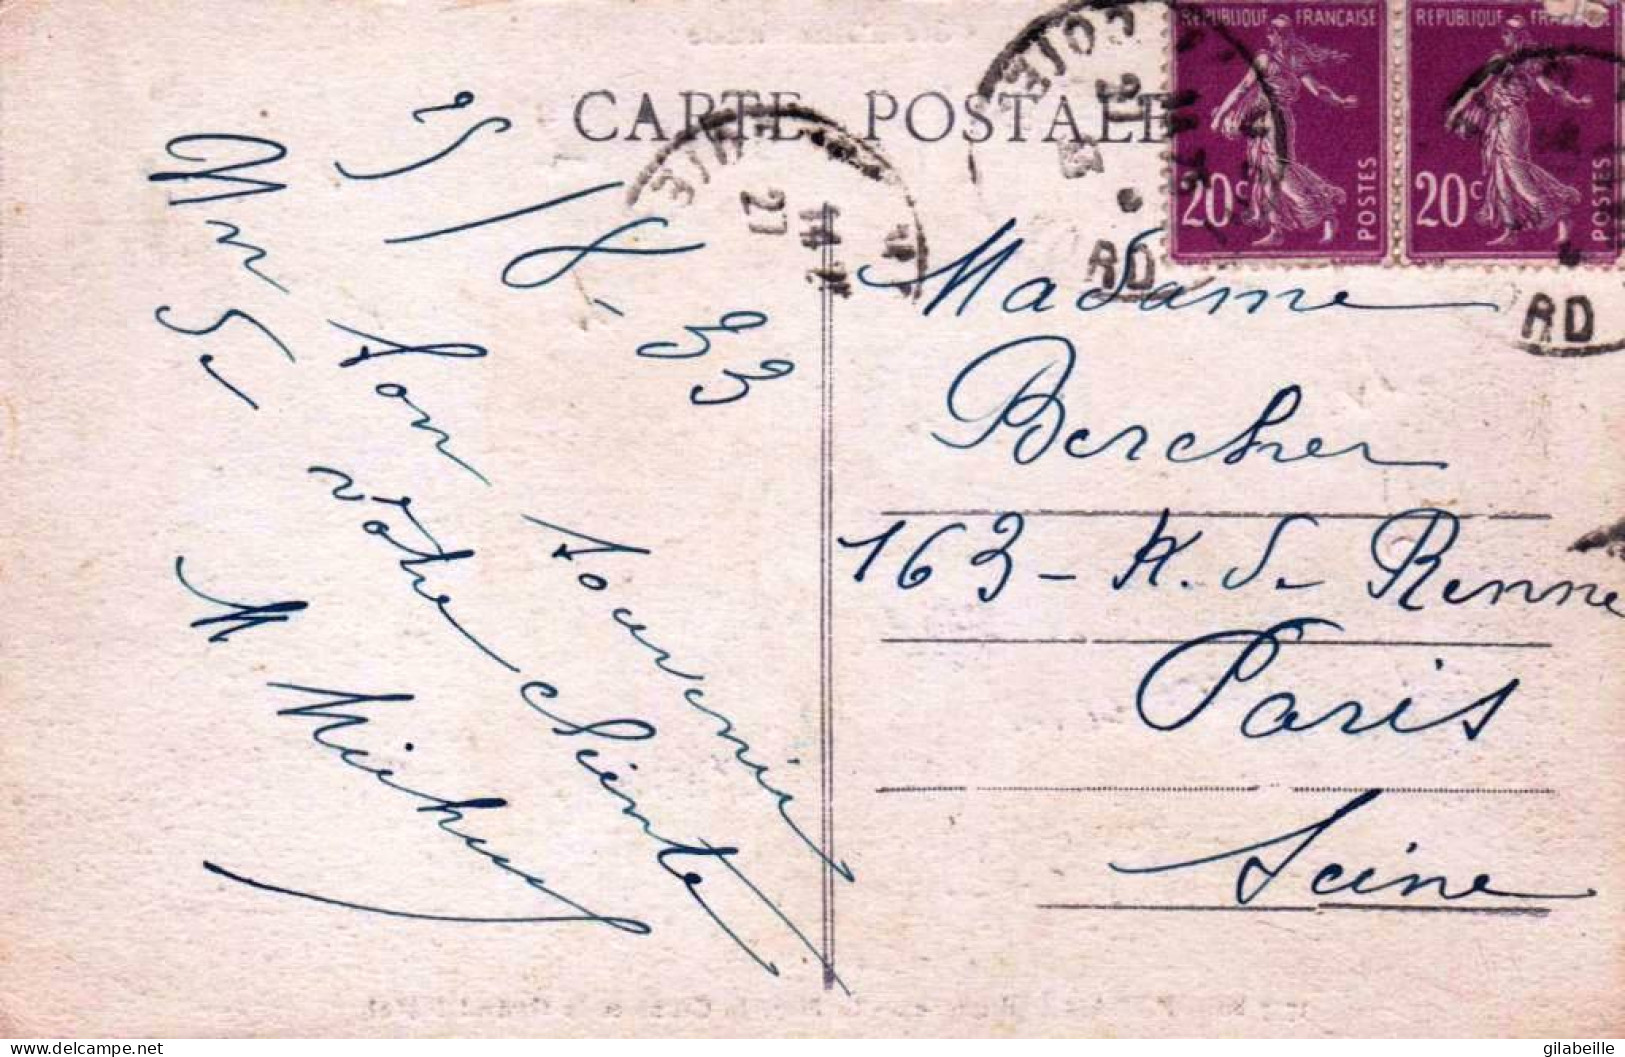 CARTE POSTALE
REPUBLIQUE FRANÇAISE
20c POSTES
REPUBLIQUE FRANÇAISE
20c POSTES
RD
RD
27
25/8-33
Un bon souvenir
votre cliente
M
Madame
Bercher
163 - R. de Renne
Paris
Seine
gilabeille